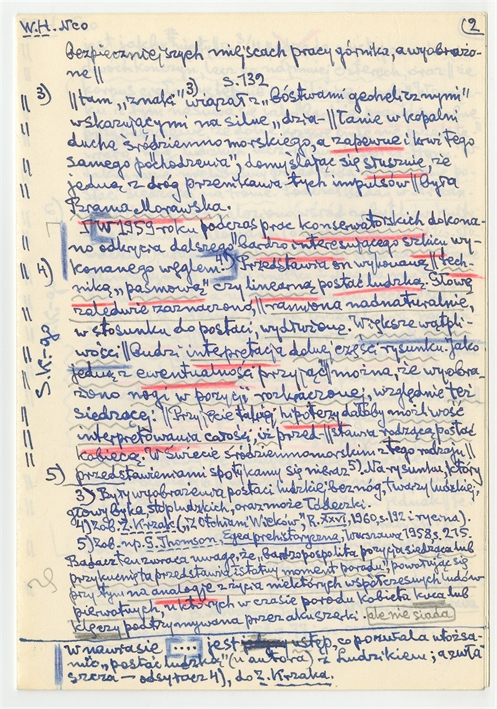 W.H. Neo
(2
bezpieczniejszych miejscach pracy górnika, a wyobrażo-
ne ||
S. 132
3) || tam „znaki" 3) wiązał z „bóstwami geohelicznymi"
wskazującymi na silne „dzia- || łanie w kopalni
ducha śródziemnomorskiego, a zapewne i krwi tego
samego pochodzenia", domyślając się słusznie, że
jedną z dróg przenikania tych impulsów || była
Brama Morawska.
W 1959 roku podczas prac konserwatorskich dokona-
no odkrycia dalszego "bardzo interesującego szkicu wy-
4) konanego węglem. 4) Przedstawia on wykonaną || tech-
niką „pasmową" czy linearną postać ludzką. Głowę
zaledwie zaznaczono, || ramiona nadnaturalnie,
w stosunku do postaci, wydłużone. Większe wątpli-
wości || budzi interpretacja dolnej części rysunku. Jako
S. Kr-go
jedną z ewentualności przyjąć || można, że wyobra-
żono nogi w pozycji rozkraczonej, względnie też
siedzącej. || Przyjęcie takiej hipotezy dałoby możliwość
interpretowania całości, iż przed- || stawia rodzącą postać
kobiecą. W świecie śródziemnomorskim z tego rodzaju ||
5) przedstawieniami spotykamy się nieraz 5). Na rysunku, który
3) Były wyobrażenia postaci ludzkiej bez nóg, twarzy ludzkiej,
głowy byka, stóp ludzkich, oraz może
4) Zob. Ż. Krzak („Z Otchłani Wieków", R. XXVI, 1960, s. 192 i rycina).
5) Zob. np. G. Thomson, Egea prehistoryczna, Warszawa 1958 s. 215.
Badacz ten zwraca uwagę, że „bardzo pospolita pozycja siedząca lub
przykucnięta przedstawia istotny moment porodu", powołując się
przy tym na analogie z życia niektórych współczesnych ludów
pierwotnych, u których w czasie porodu kobieta kuca lub
klęczy podtrzymywana przez akuszerki. ale nie siada
w nawiasie .... jest ustęp, co pozwala utożsa-
mić „postać ludzką" (u autora) z Ludzikiem; a zwła-
szcza — odsyłacz 4), do Z. Krzaka.